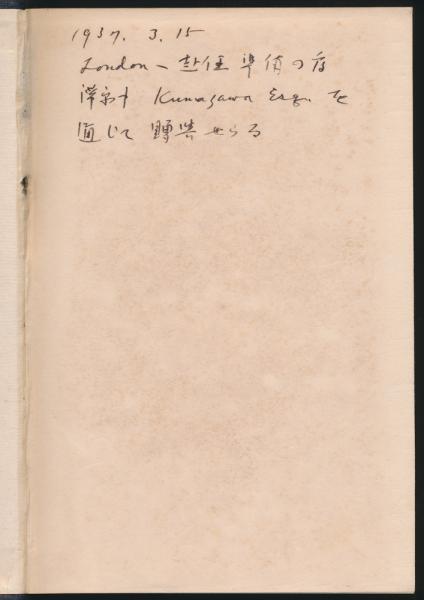 1937. 3. 15
London へ赴任準備の為
Kumazawa Esq. を
通じて 贈 せらる